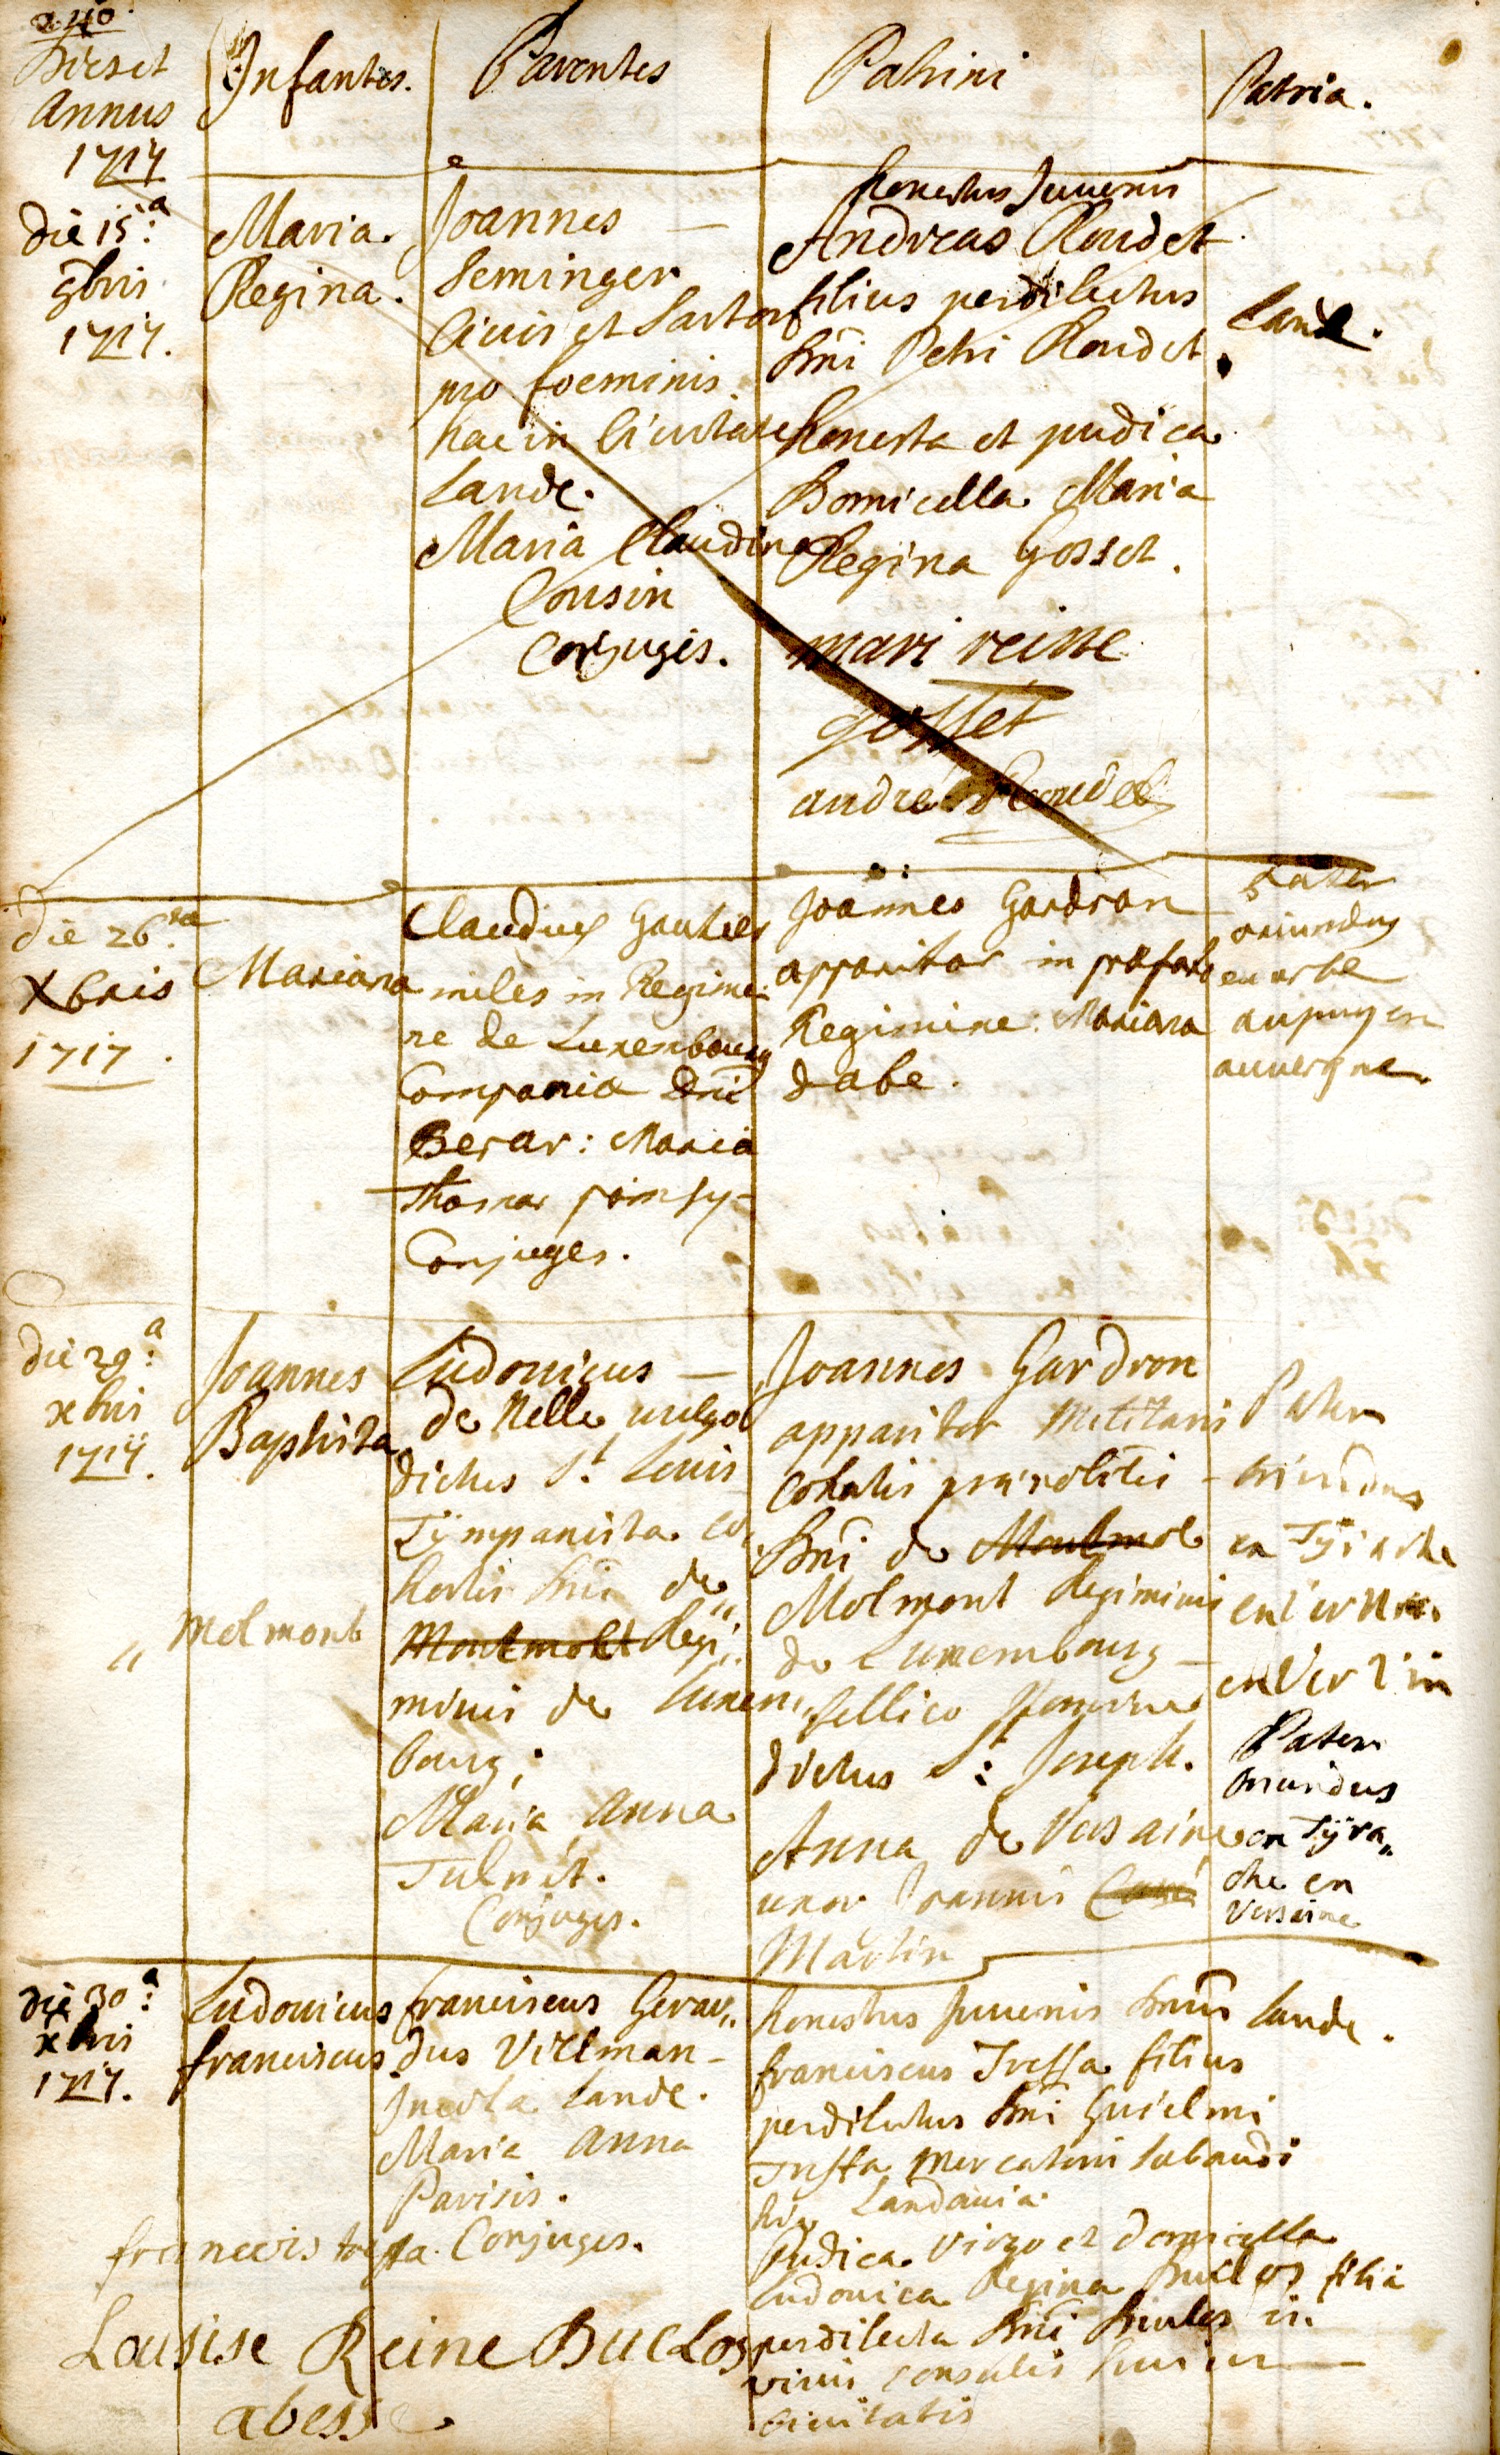 240.
Dies et
Annus
1717
Infantes.
Parentes
Patrini
Patria.
die 15.a
9bris
1717.
Maria
Regina.
Joannes —
Seminger
Civis et Sartor
pro foeminis
hac in Civitate
Landa.
Maria Claudina
Cousin
Conjuges.
honestus Juvenis
Andreas Roudet
filius perdilectus
Dni Petri Roudet
honesta et pudica
Domicella Maria
Regina Gosset.
mari reine
gosset
andre Roudet
Landa.
die 26.ta
Xbris
1717.
Mariana
Claudius Gautier
miles in Regimi
ne de Luxembourg
Compania Dni
Berar: Maria
Thomas
Conjuges.
Joannes Gardron
apparitor in præfato
Regimine: Mariana
Dabe.
Pater
oriundus
ex urbe
aupuy en
auvergne.
die 29.a
xbris
1717.
Joannes
Baptista
„ Molmont
Ludovicus —
de Nelle vulgo
dictus St Louis
Tympanista co„
hortis Dni de„
Montmolt Regi„
minis de Luxem„
bourg;
Maria Anna
Tulnét.
Conjuges.
Joannes Gardron
apparitor Militaris
Cohortis prænobilis
Dni de Montmol
Molmont Regiminis
de Luxembourg —
bellico Nomine
dictus St: Joseph.
Anna de Versaine
uxor Joannis
Martin
Pater
oriundus
en Tyirache
en Vervin
Pater
oriundus
en Tÿra„
che en
Versaine
die 30.a
xbris
1717.
Ludovicus
franciscus
franciscus Gerar„
dus Villman —
Incola Landa.
Maria Anna
Parisis.
Conjuges.
honestus Juvenis Dnus
franciscus Tressa filius
perdilectus Dni Guielmi
Tressa Mercatoris Sabaudi
hic Landavia.
Pudica Virgo et domicella
Ludovica Regina Buclos filia
perdilecta Dni Buclos in
civitatis
Landa.
francois tressa
Lousise Reine BucLos
abesse